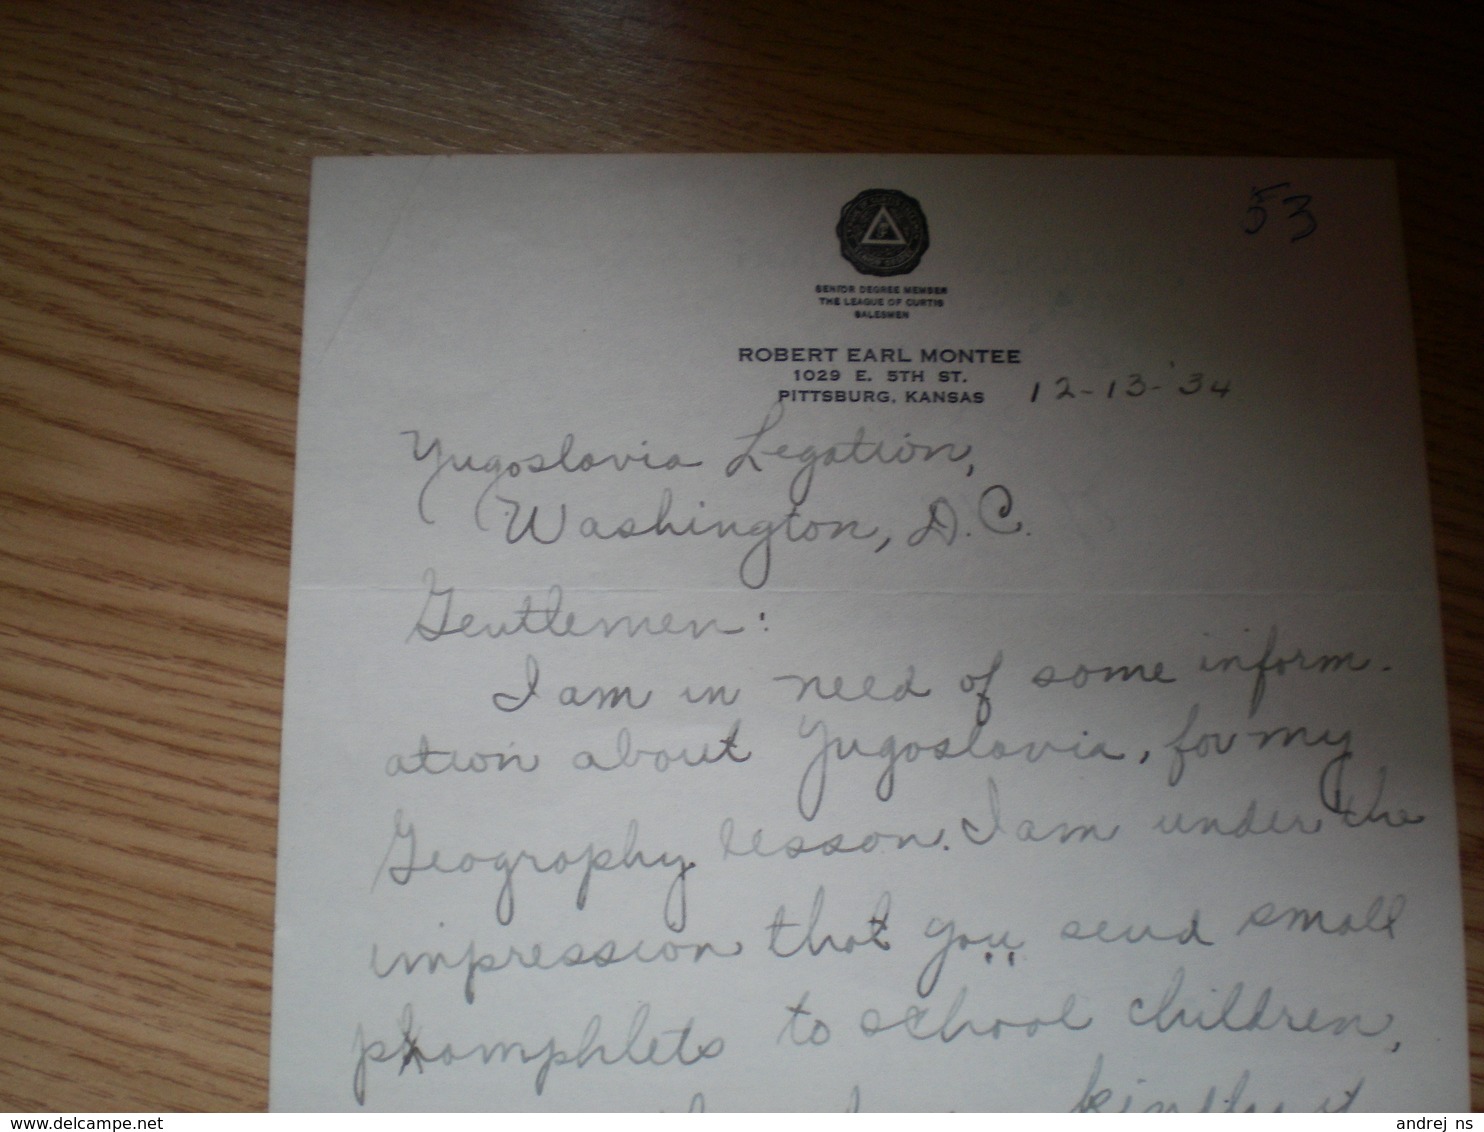 53
SENIOR DEGREE MEMBER
THE LEAGUE OF CURTIS
SALESMEN
ROBERT EARL MONTEE
1029 E. 5TH ST.
PITTSBURG, KANSAS
12-13-'34
Yugoslavia Legation,
Washington, D.C.
Gentlemen:
I am in need of some inform-
ation about Yugoslavia, for my
Geography lesson. I am under the
impression that you send small
phamphlets to school children,
kindly
delcampe.net
andrej_ns